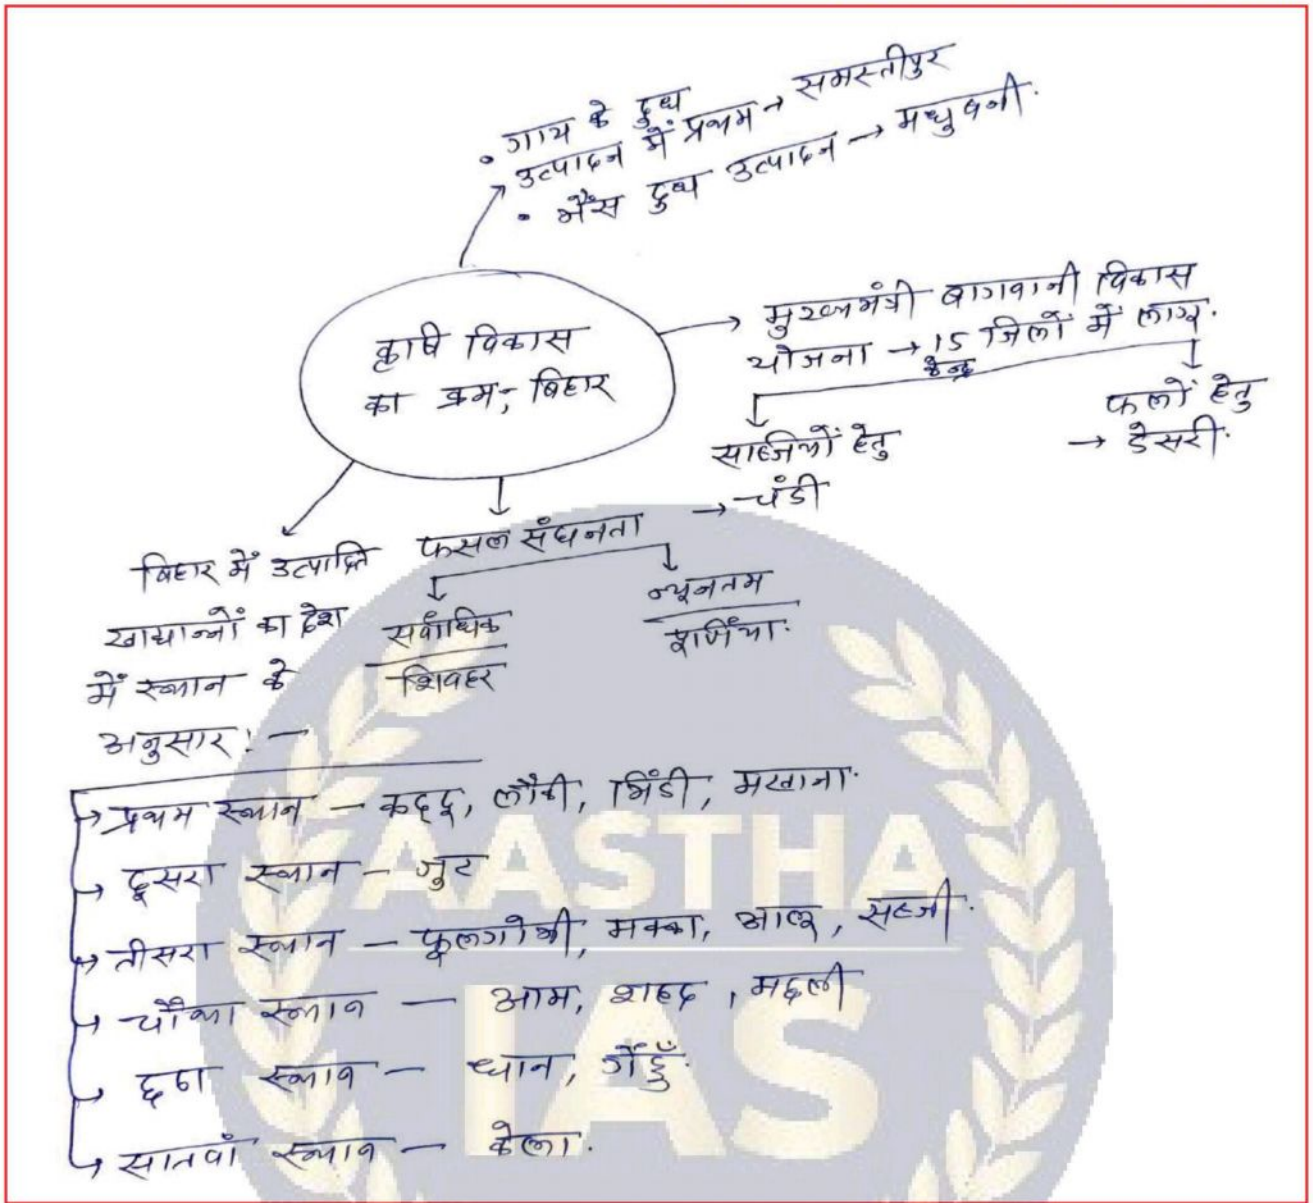 • गाय के दुध
उत्पादन में प्रथम → समस्तीपुर
• भैंस दुध उत्पादन → मधुबनी.
कृषि विकास
का क्रम; बिहार
मुख्यमंत्री बागवानी विकास
योजना → 15 जिलों में लागू.
केन्द्र
सब्जियों हेतु
→ चंडी
फलों हेतु
→ देसरी.
फसल संघनता
सर्वाधिक
शिवहर
न्यूनतम
पूर्णिया.
बिहार में उत्पादित
खाद्यान्नों का देश
में स्थान के
अनुसार: -
→ प्रथम स्थान - कद्दू, लौकी, भिंडी, मखाना.
→ दूसरा स्थान - जुट
→ तीसरा स्थान - फूलगोभी, मक्का, आलू, सब्जी.
→ चौथा स्थान - आम, शहद, मछली
→ छठा स्थान - धान, गेंहूँ.
→ सातवां स्थान - केला.
AASTHA
IAS